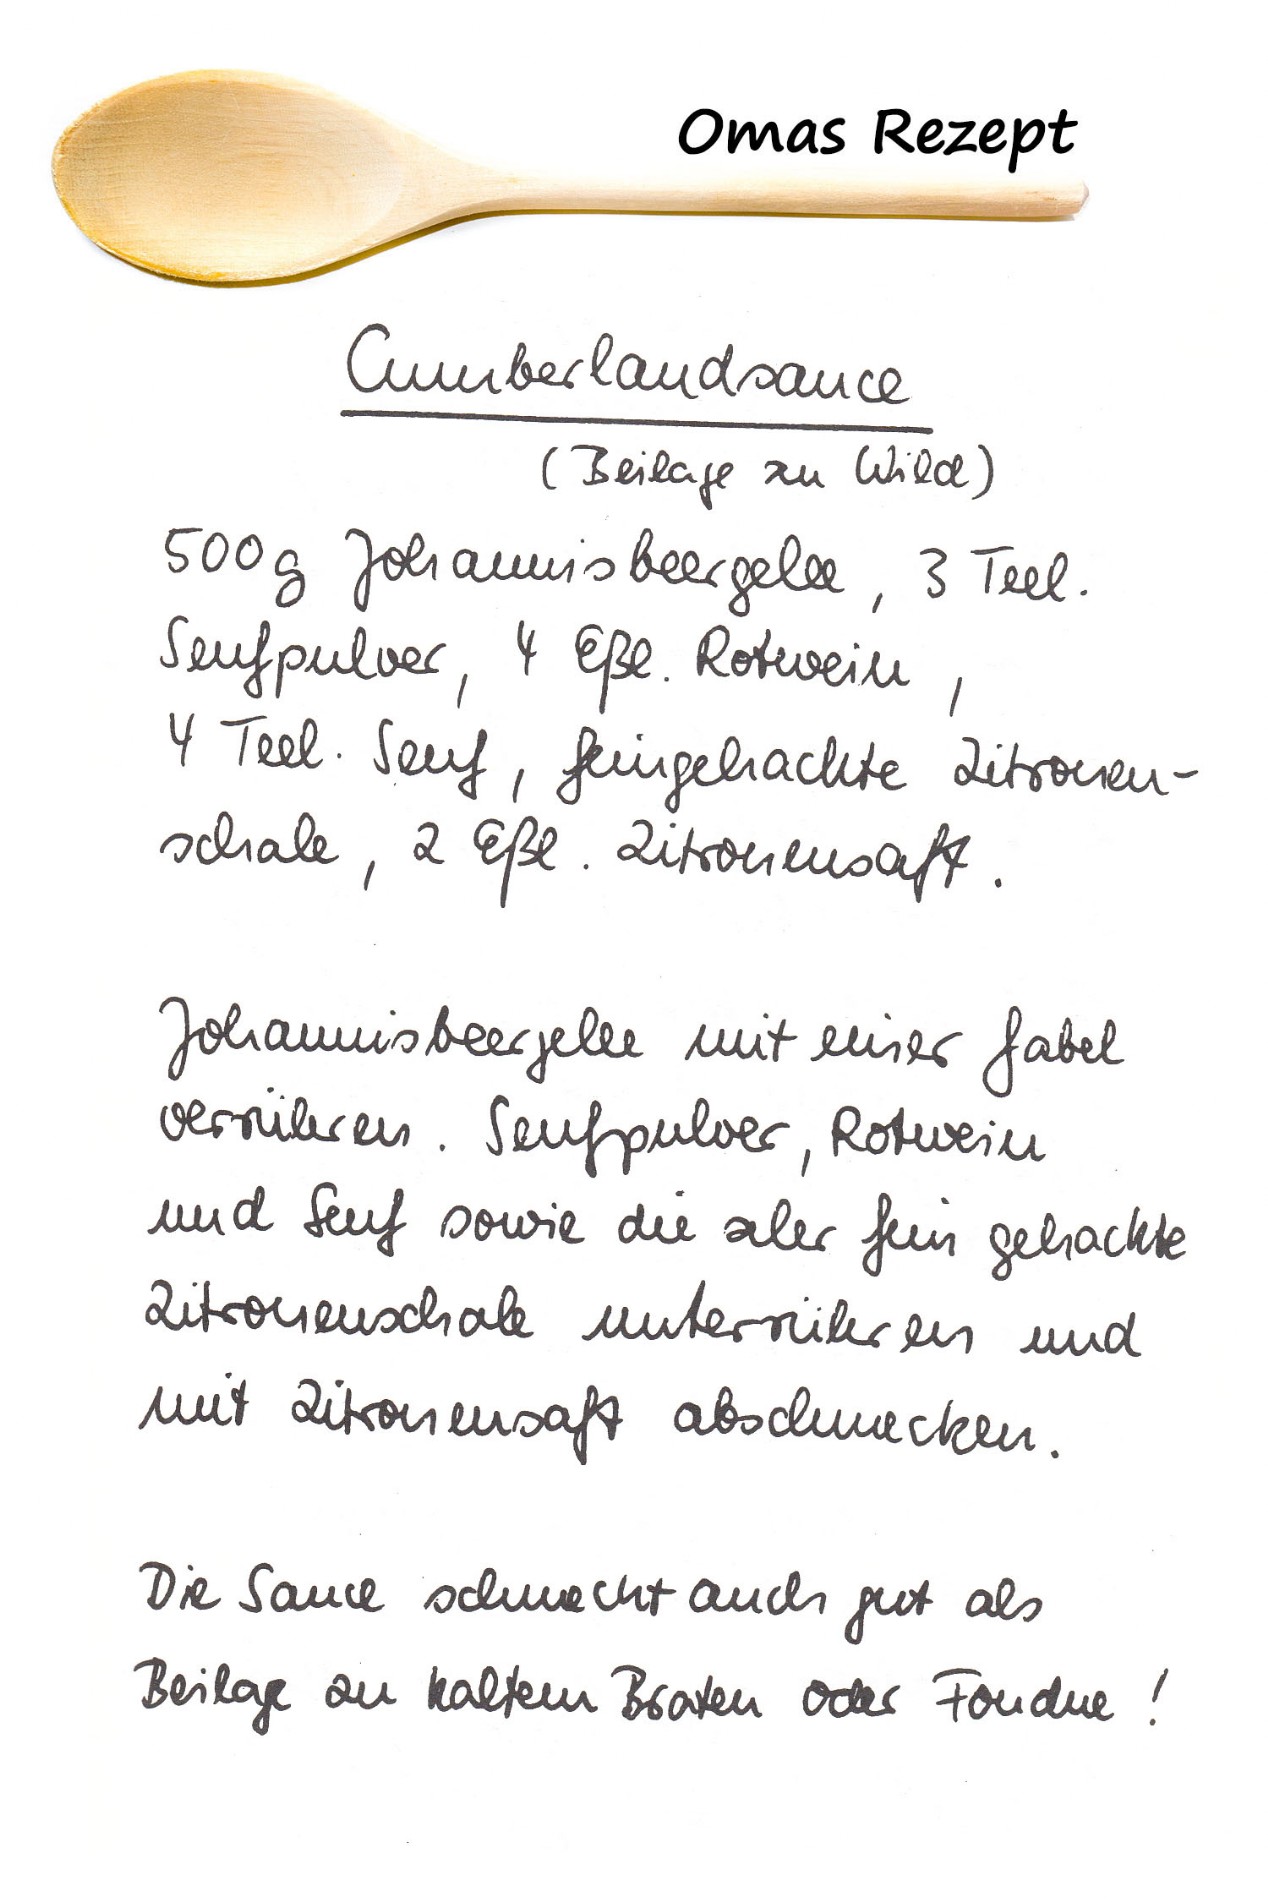 Omas Rezept
Cumberlandsauce
(Beilage zu Wild)
500g Johannisbeergelee, 3 Teel.
Senfpulver, 4 Eßl. Rotwein,
4 Teel. Senf, feingehackte Zitronen-
schale, 2 Eßl. Zitronensaft.
Johannisbeergelee mit einer Gabel
verrühren. Senfpulver, Rotwein
und Senf sowie die sehr fein gehackte
Zitronenschale unterrühren und
mit Zitronensaft abschmecken.
Die Sauce schmeckt auch gut als
Beilage zu kaltem Braten oder Fondue!